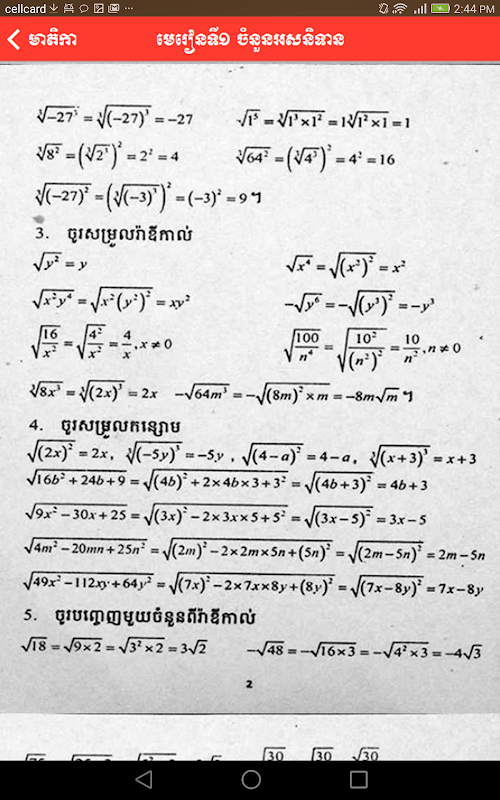 cellcard 2:44 PM
មាតិកា មេរៀនទី១ ចំនួនអសនិទាន
∛(-27³) = ∛((-27)³) = -27 ∛(1⁵) = ∛(1³×1²) = 1∛(1²×1) = 1
∛(8²) = (∛(2³))² = 2² = 4 ∛(64²) = (∛(4³))² = 4² = 16
∛((-27)²) = (∛((-3)³))² = (-3)² = 9 ។
3. ចូរសម្រួលរ៉ាឌីកាល់
√(y²) = y √(x⁴) = √((x²)²) = x²
√(x²y⁴) = √(x²(y²)²) = xy² -√(y⁶) = -√((y³)²) = -y³
√(16/x²) = √(4²/x²) = 4/x, x ≠ 0 √(100/n⁴) = √(10²/(n²)²) = 10/n², n ≠ 0
∛(8x³) = ∛((2x)³) = 2x -√(64m³) = -√((8m)²×m) = -8m√m ។
4. ចូរសម្រួលកន្សោម
√((2x)²) = 2x, ∛((-5y)³) = -5y, √((4-a)²) = 4-a, ∛((x+3)³) = x+3
√(16b²+24b+9) = √((4b)²+2×4b×3+3²) = √((4b+3)²) = 4b+3
√(9x²-30x+25) = √((3x)²-2×3x×5+5²) = √((3x-5)²) = 3x-5
√(4m²-20mn+25n²) = √((2m)²-2×2m×5n+(5n)²) = √((2m-5n)²) = 2m-5n
√(49x²-112xy+64y²) = √((7x)²-2×7x×8y+(8y)²) = √((7x-8y)²) = 7x-8y
5. ចូរបញ្ចេញមួយចំនួនពីរ៉ាឌីកាល់
√18 = √(9×2) = √(3²×2) = 3√2 -√48 = -√(16×3) = -√(4²×3) = -4√3
2